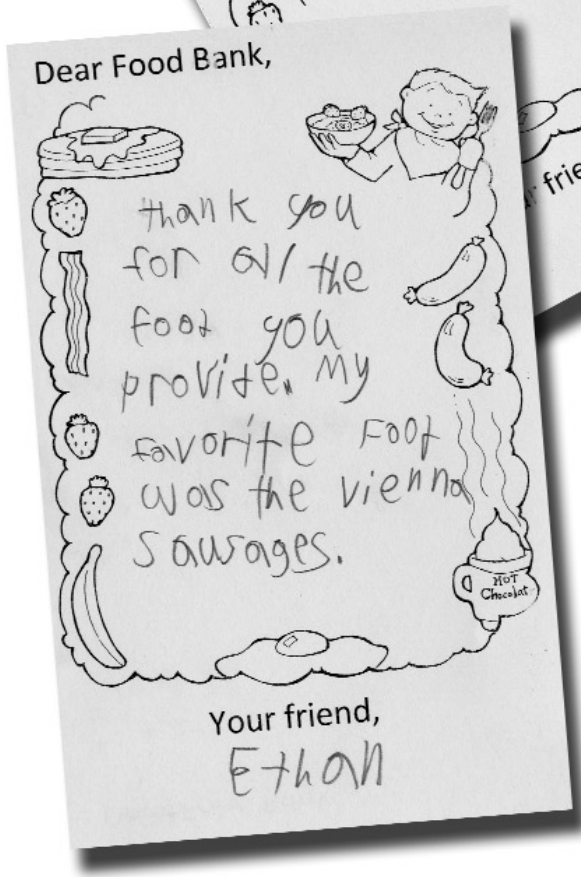 Dear Food Bank,
thank you
for all the
food you
provide. My
favorite Food
was the vienna
sausages.
HOT
Chocolat
Your friend,
Ethan
r frie